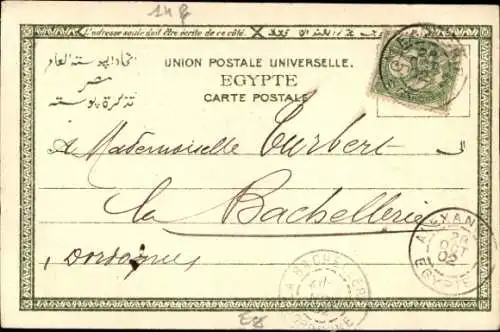 14 8
L'adresse seule doit être écrite de ce côté.
اتحاد البوسته العام
مصر
تذكرة بوسته
UNION POSTALE UNIVERSELLE.
EGYPTE
CARTE POSTALE
A Mademoiselle Turbert
La Bachellerie
Dordogne
ALEXAN
OCT
EGYPTE
LA BACHELLERIE
DORDOGNE